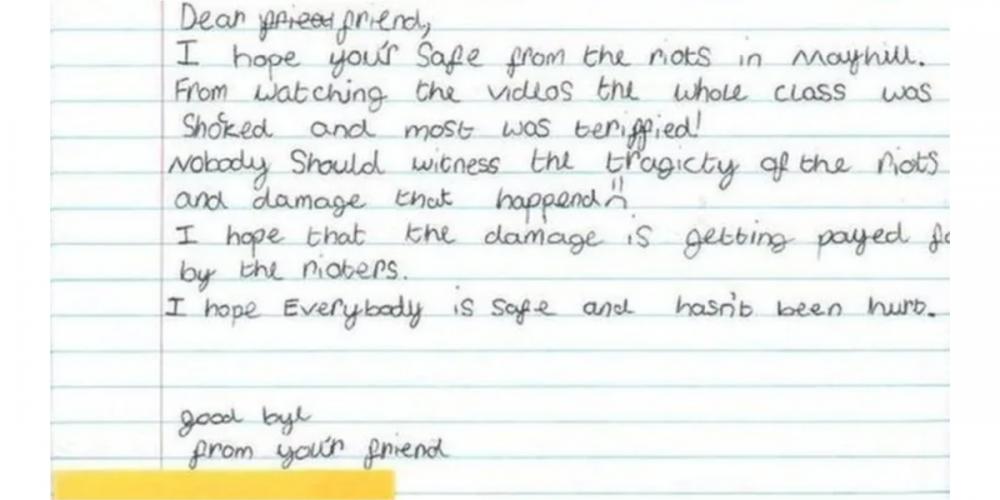 Dear friend,
I hope you'r safe from the riots in Mayhill.
From watching the videos the whole class was
shoked and most was teriffied!
Nobody should witness the tragicty of the riots
and damage that happend
I hope that the damage is getting payed fo
by the rioters.
I hope Everybody is safe and hasn't been hurt.
good bye
from you'r friend